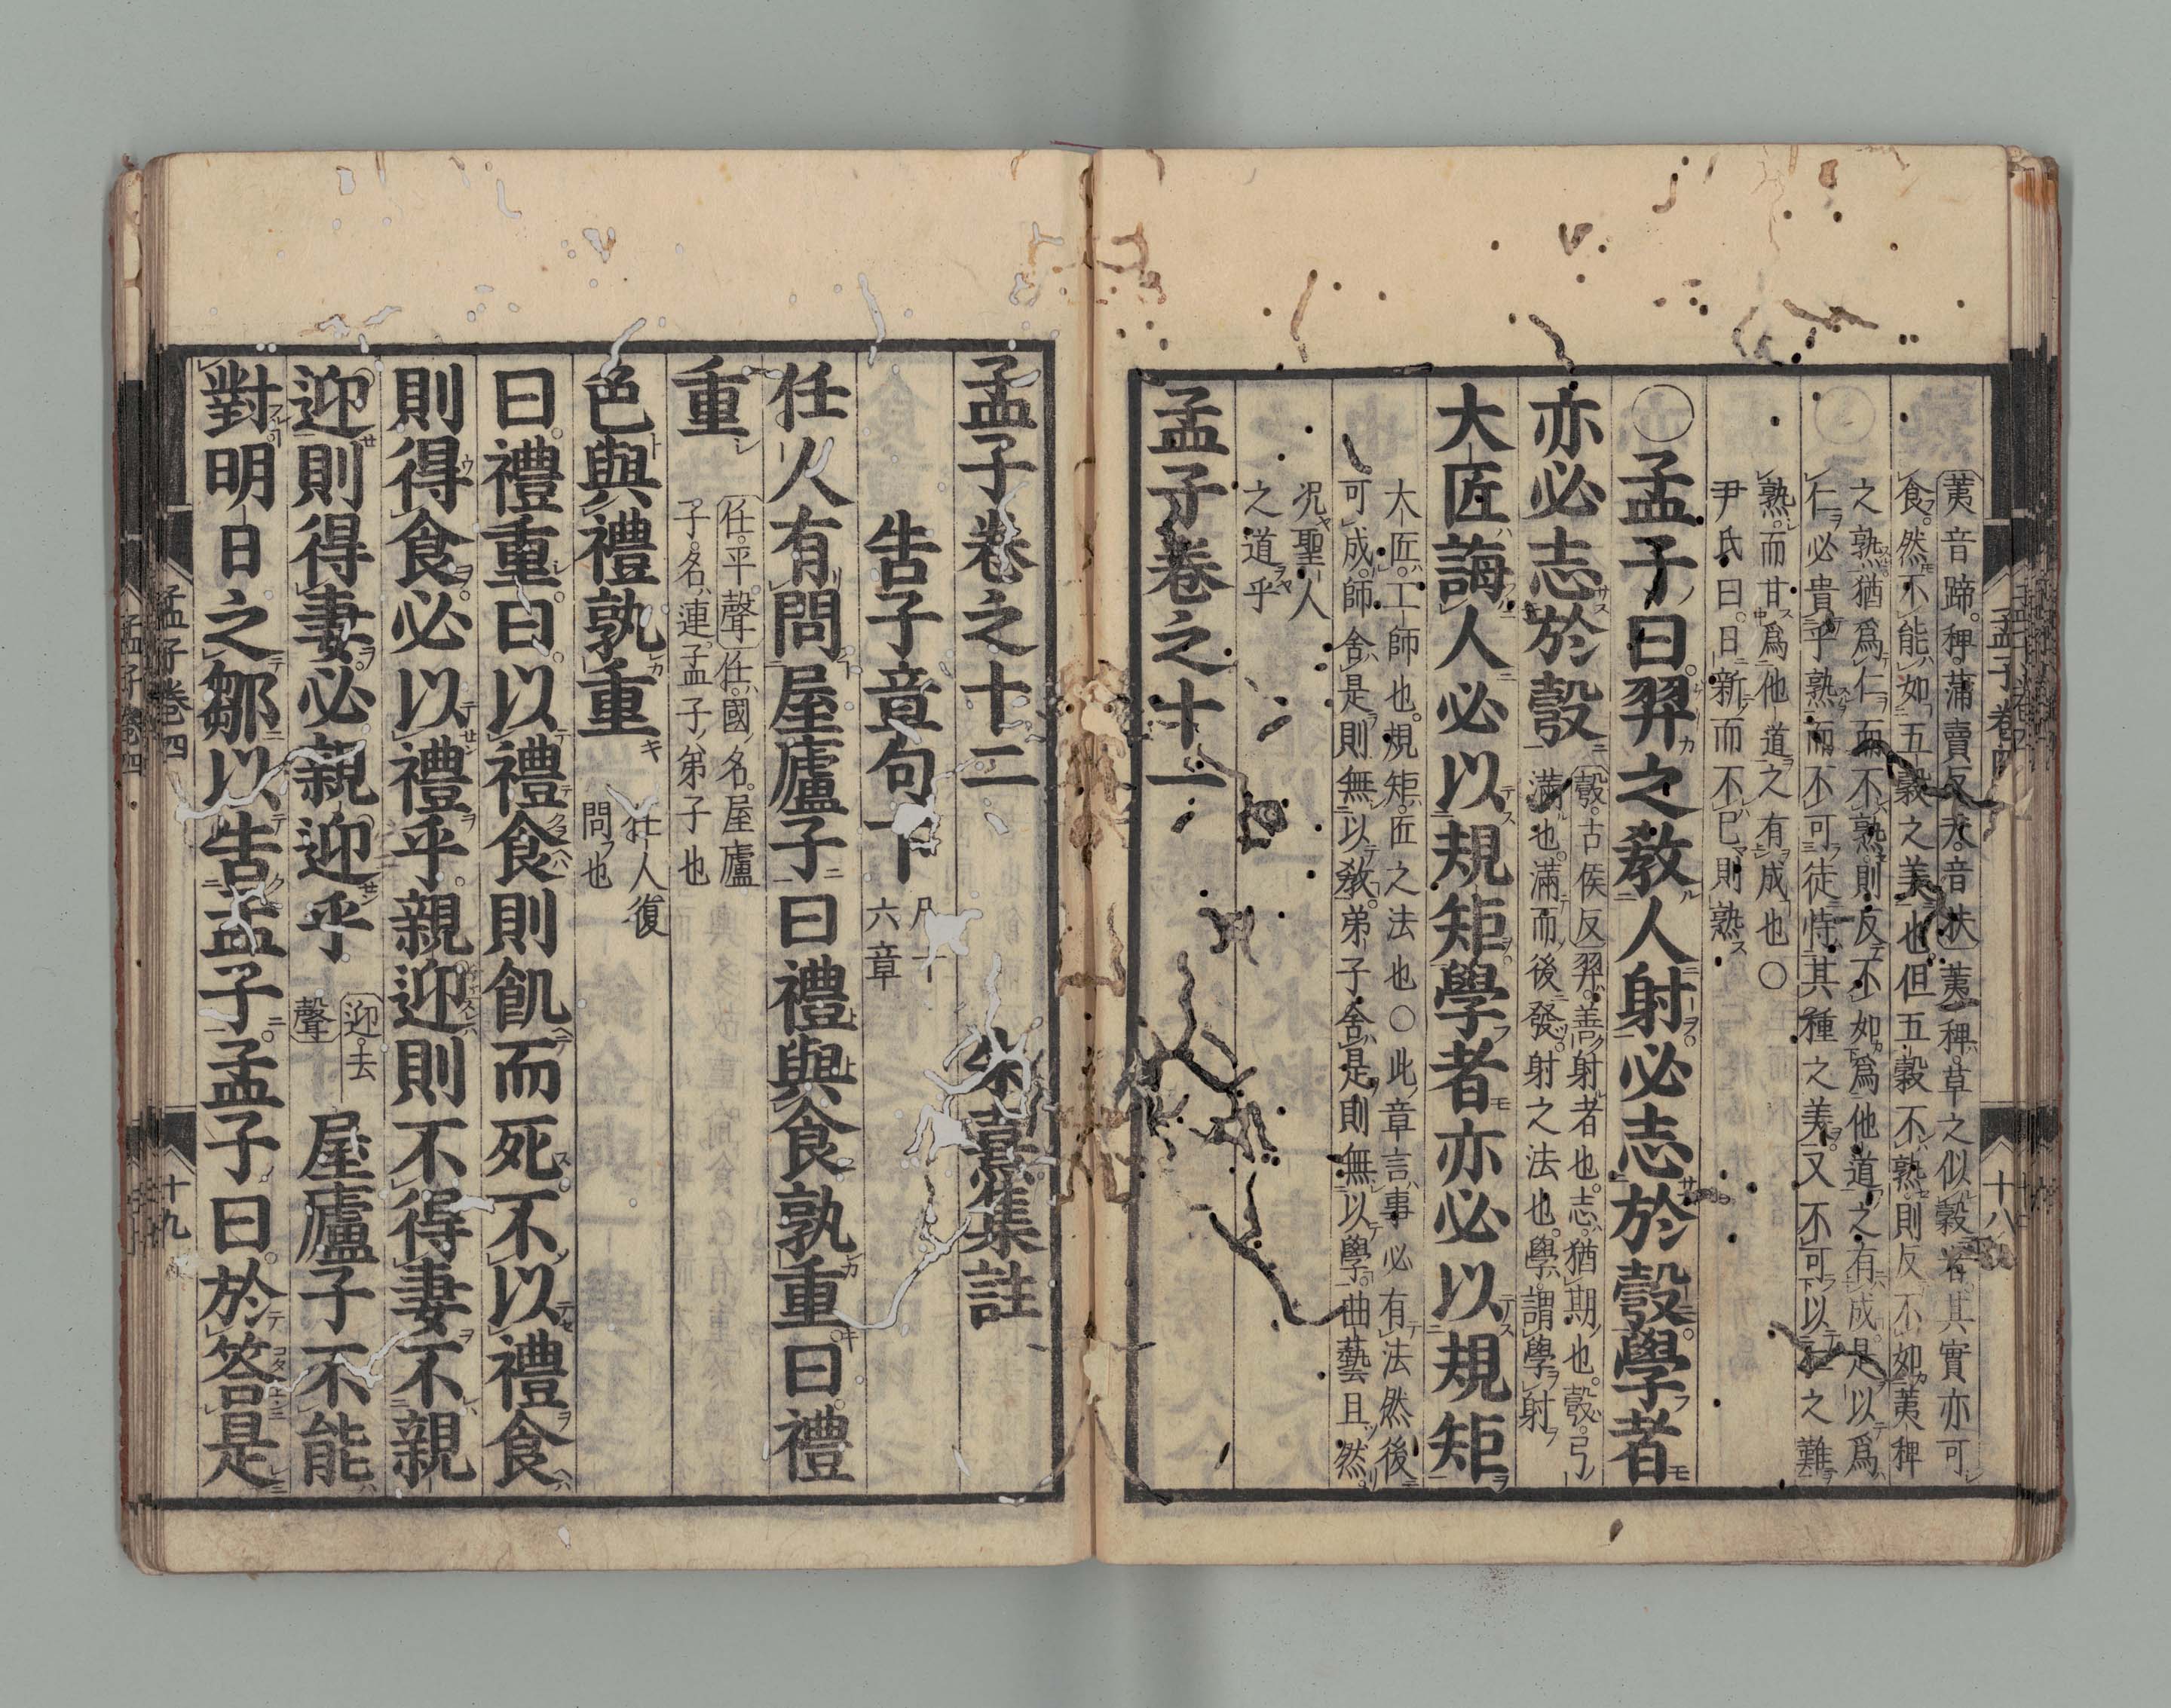 荑音蹄。稗。蒲賣反。夫。音扶荑稗。草之似穀者。其實亦可
食。然不能如五穀之美也。但五穀不熟。則反不如荑稗
之熟。猶爲仁而不熟。則反不如爲他道之有成。是以爲
仁必貴乎熟。而不可徒恃其種之美。又不可以仁之難
熟。而甘爲他道之有成也〇
尹氏曰。日新而不已則熟
〇孟子曰。羿之敎人射。必志於彀。學者
亦必志於彀
彀。古侯反羿。善射者也。志。猶期也。彀。弓
満也。滿而後發射之法也。學。謂學射
大匠誨人必以規矩。學者亦必以規矩
大匠。工師也。規矩。匠之法也〇此章言事必有法然後
可成。師舍是則無以敎。弟子舍是則無以學。曲藝且然。
况聖人
之道乎
孟子卷之十一
孟子卷四
十八
孟子卷之十二
朱熹集註
告子章句下
凡十
六章
任人有問屋廬子曰禮與食孰重曰。禮
重
任。平聲任。國名。屋廬
子。名。連孟子弟子也
色與禮孰重
任人復
問也
曰。禮重。曰。以禮食則飢而死。不以禮食
則得食。必以禮乎。親迎則不得妻。不親
迎則得妻。必親迎乎
迎。去
聲
屋廬子不能
對明日之鄒以告孟子。孟子曰。於答是
孟子卷四
十九